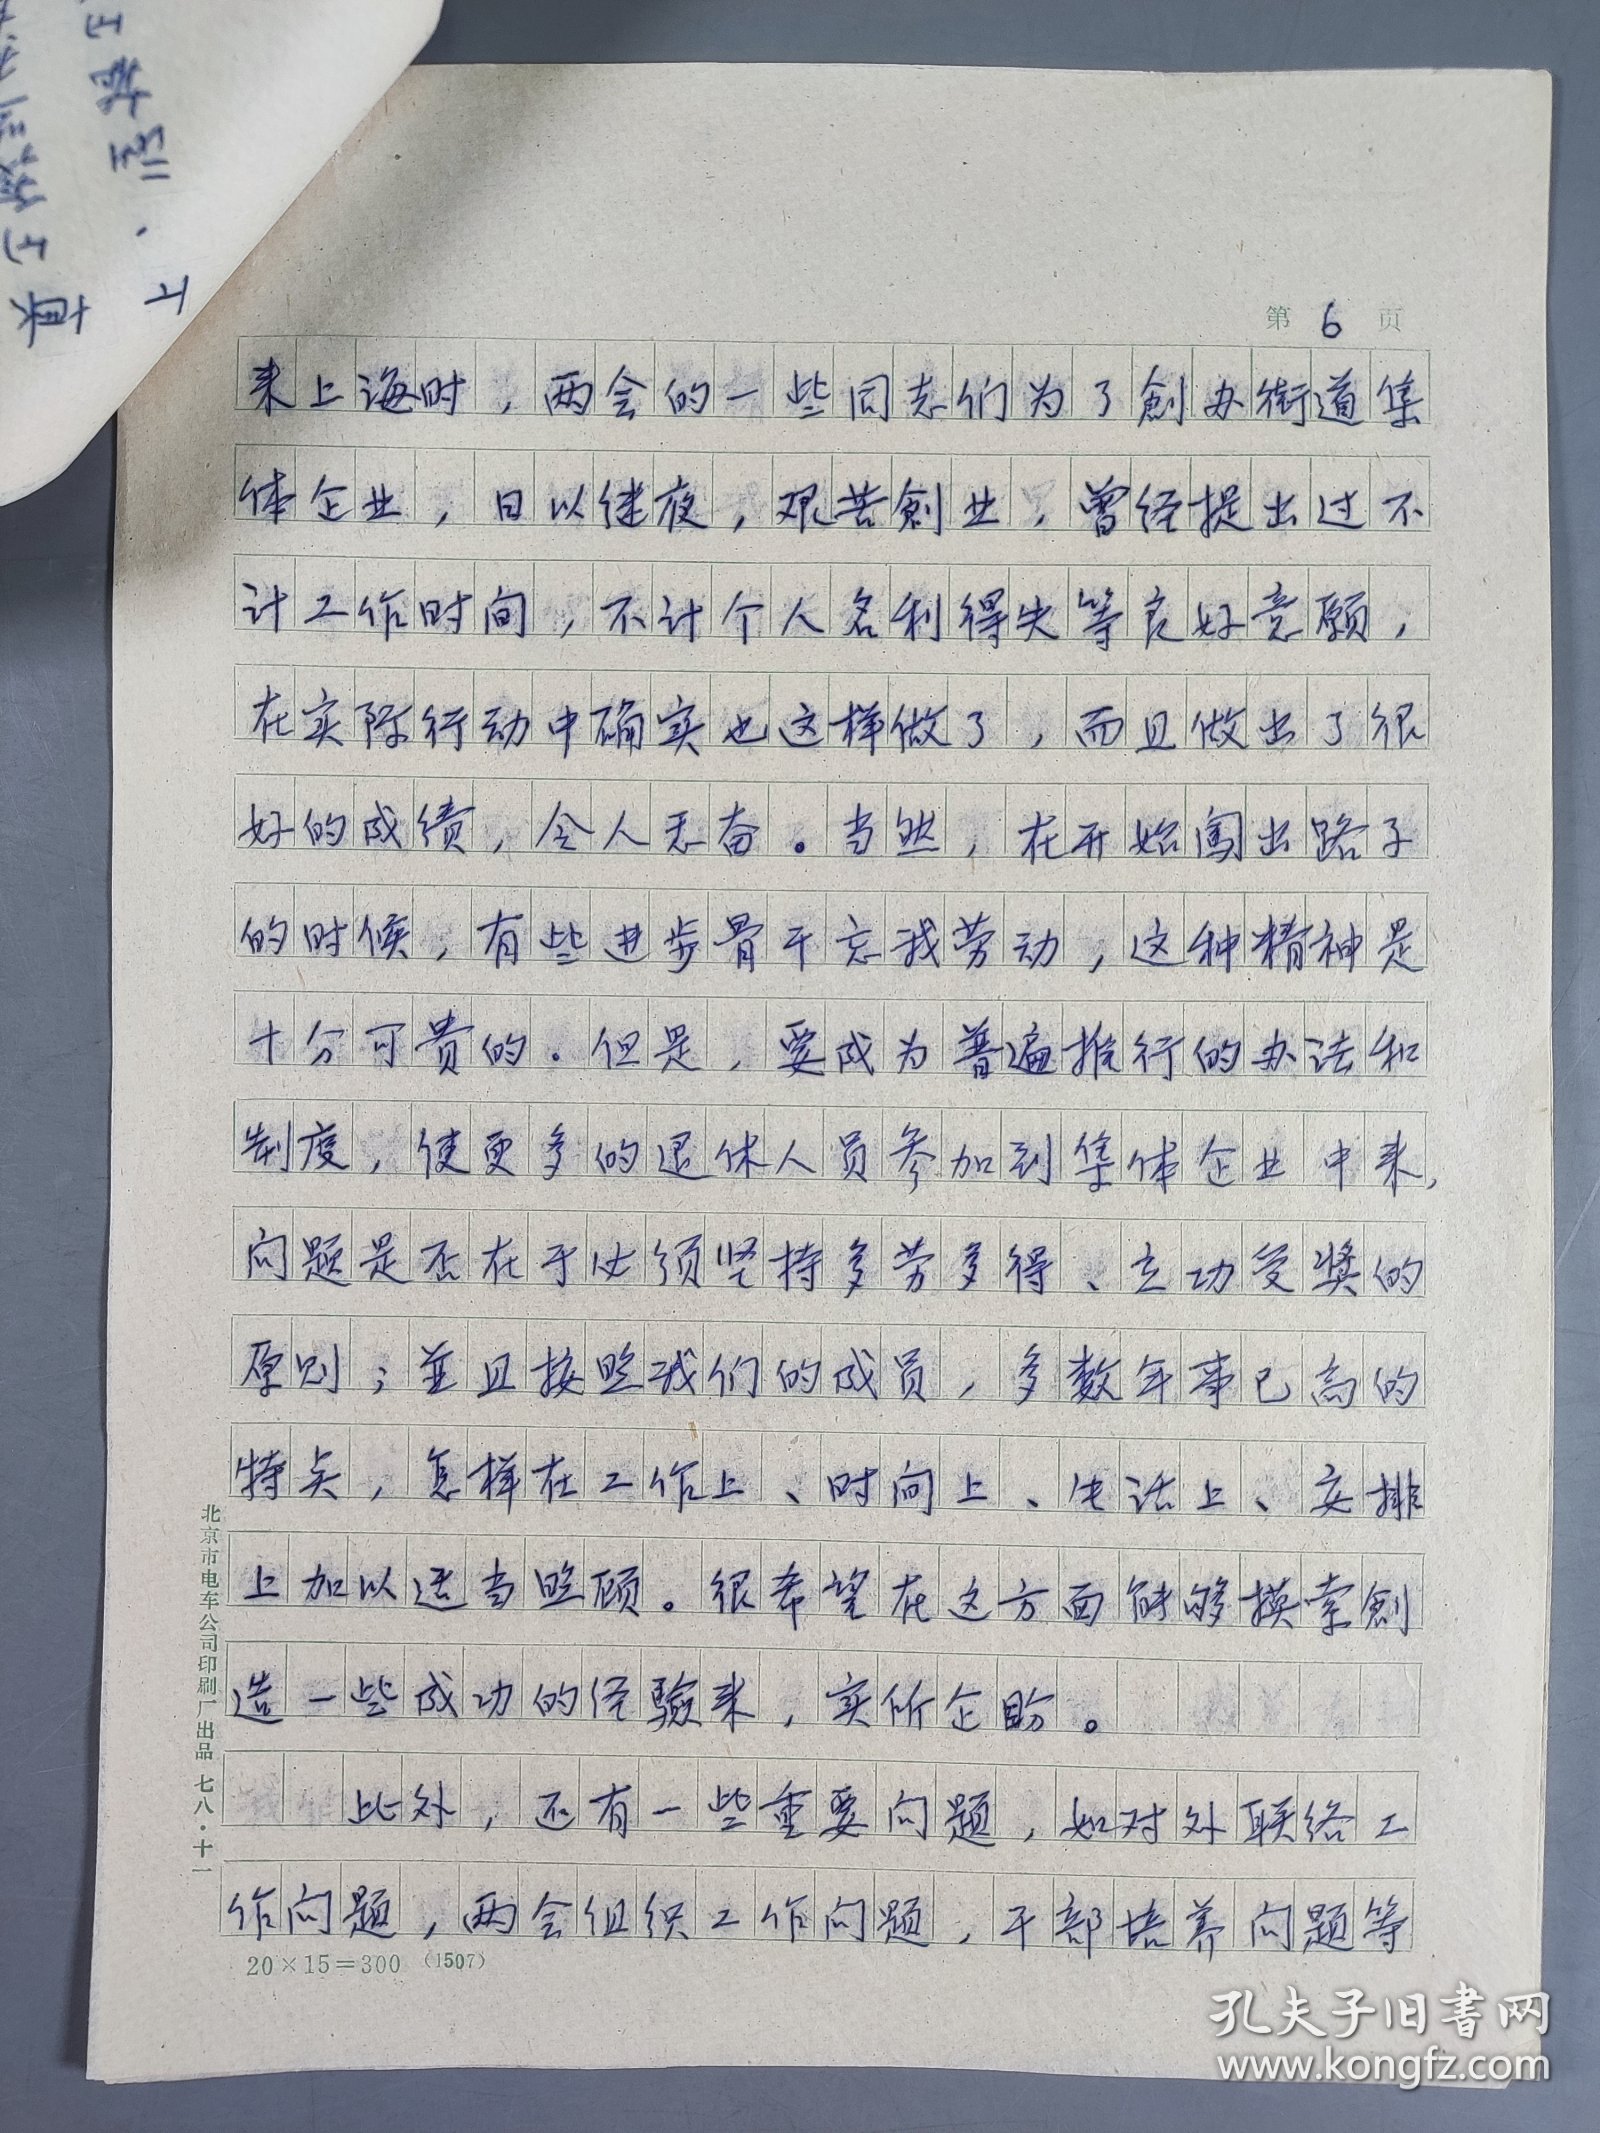 第 6 页
来上海时，两会的一些同志们为了創办街道集
体企业，日以继夜，艰苦創业，曾经提出过不
计工作时间，不计个人名利得失等良好意愿，
在实际行动中确实也这样做了，而且做出了很
好的成绩，令人无奋。当然，在开始闯出路子
的时候，有些进步骨干忘我劳动，这种精神是
十分可贵的。但是，要成为普遍推行的办法和
制度，使更多的退休人员参加到集体企业中来，
问题是否在于必须坚持多劳多得、立功受奖的
原则；並且按照我们的成员，多数年事已高的
特点，怎样在工作上、时间上、生活上、安排
上加以适当照顾。很希望在这方面能够摸索創
造一些成功的经验来，实所企盼。
此外，还有一些重要问题，如对外联络工
作问题，两会组织工作问题，干部培养问题等
20×15=300 (1507)
北京市电车公司印刷厂出品 七八·十一
孔夫子旧书网
www.kongfz.com